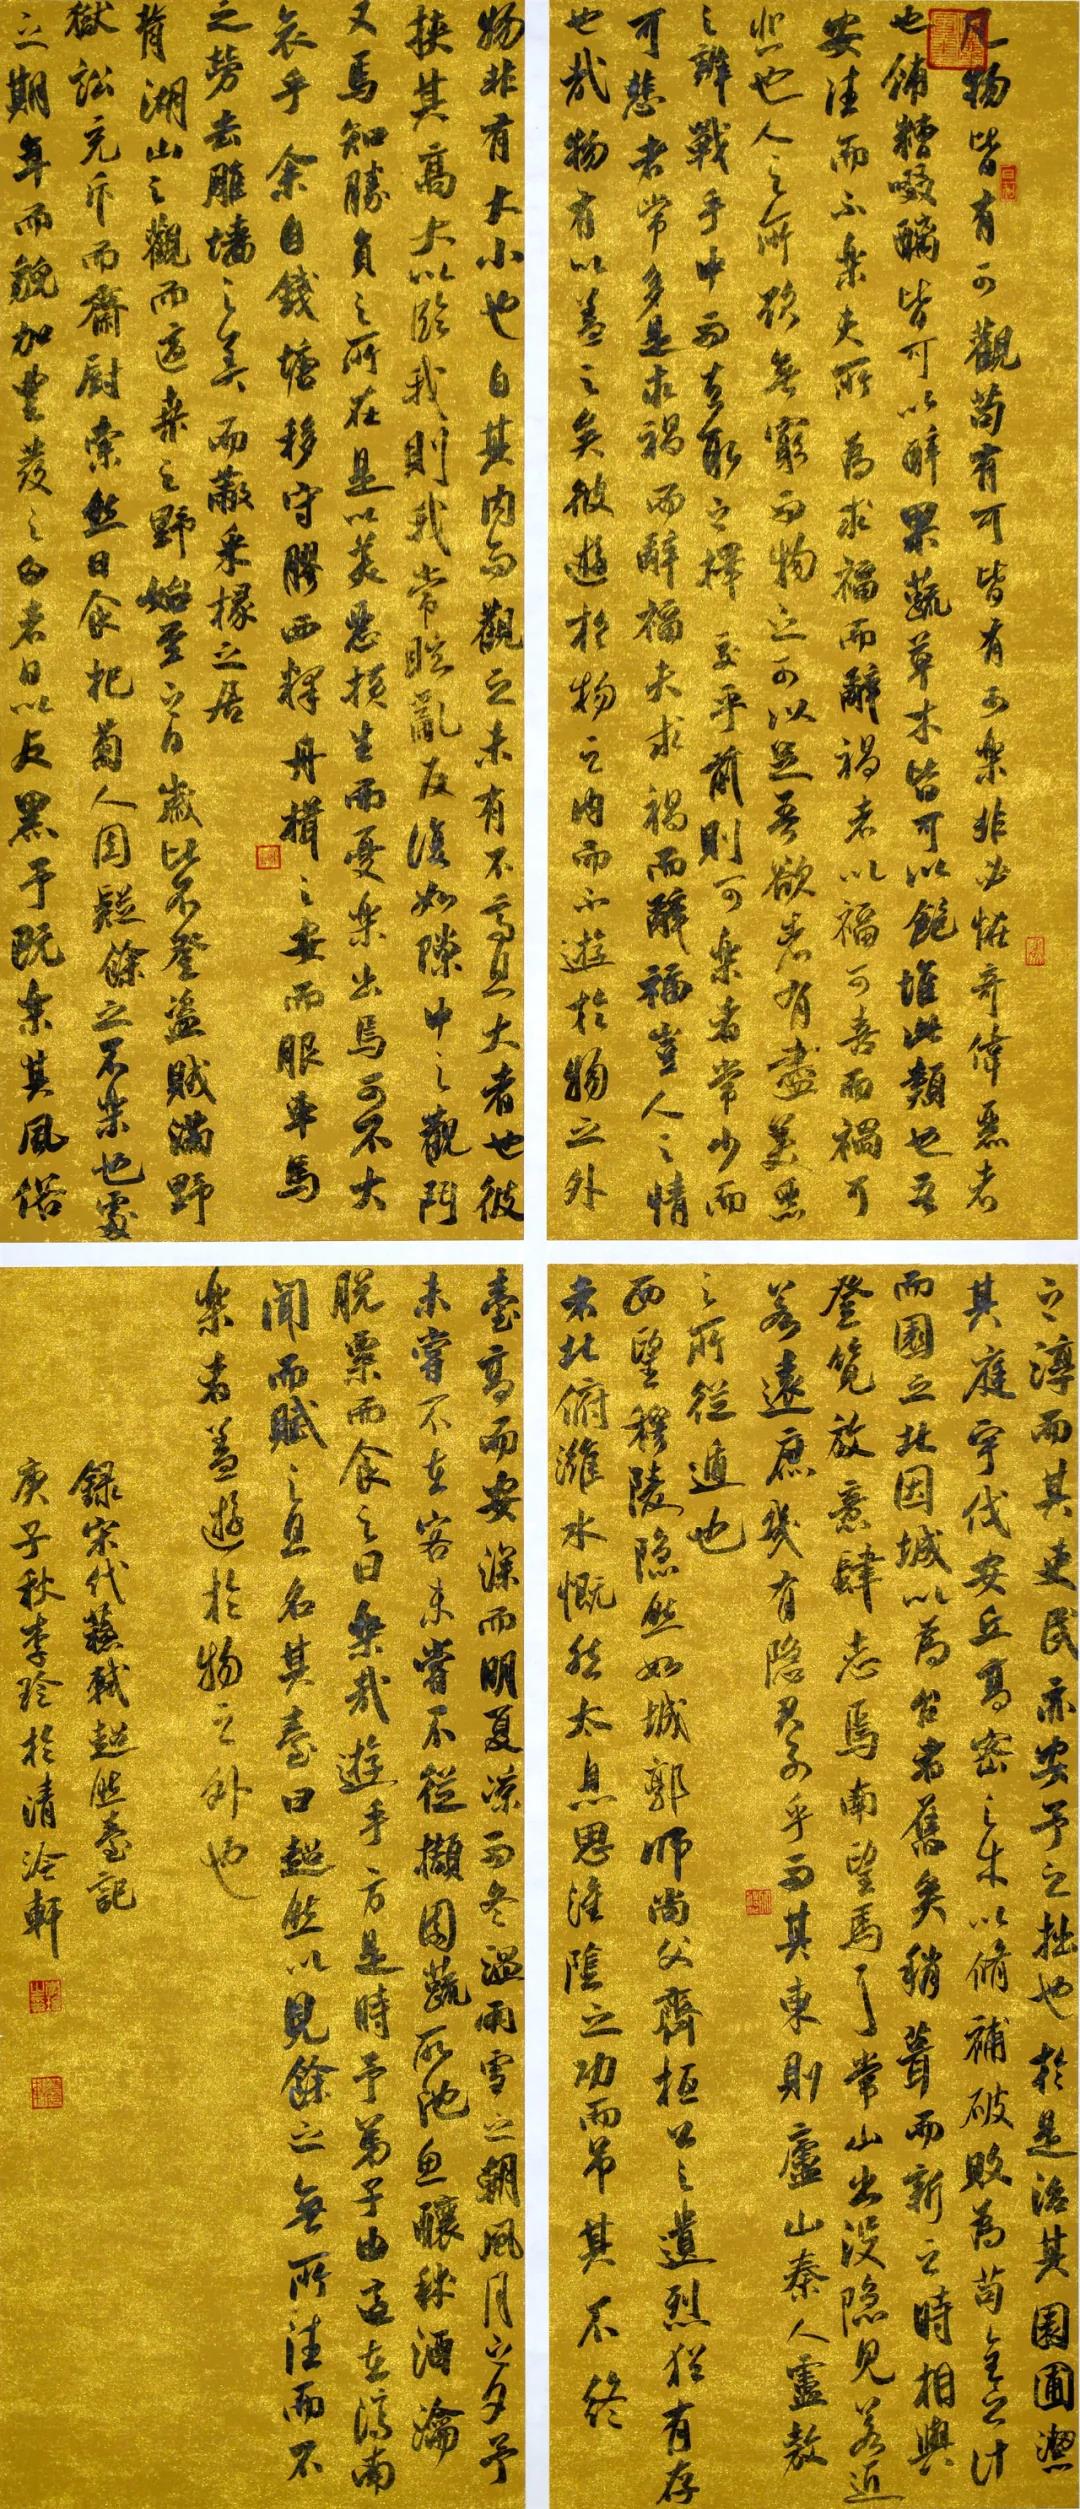 凡物皆有可觀苟有可皆有可樂非必怪奇偉惡者
也餔糟啜醨皆可以醉果蔬草木皆可以飽推此類也吾
安往而不樂夫所為求福而辭禍者以福可喜而禍可
悲也人之所欲無窮而物之可以足吾欲者有盡美惡
之辨戰乎中而去取之擇交乎前則可樂者常少而
可悲者常多是求禍而辭福夫求禍而辭福豈人之情
也哉物有以蓋之矣彼遊於物之內而不遊於物之外
物非有大小也自其內而觀之未有不高且大者也彼
挾其高大以臨我則我常眩亂反復如隙中之觀鬥
又焉知勝負之所在是以美惡橫生而憂樂出焉可不大
哀乎余自錢塘移守膠西釋舟楫之安而服車馬
之勞去雕墻之美而蔽采椽之居
背湖山之觀而適桑之野始至之日歲比不登盜賊滿野
獄訟充斥而齋廚索然日食杞菊人固疑餘之不樂也處
之期年而貌加豐髮之白者日以反黑予既樂其風俗
之淳而其吏民亦安予之拙也於是治其園圃潔
其庭宇伐安丘高密之木以脩補破敗為苟全之計
而園之北因城以為台者舊矣稍葺而新之時相與
登覽放意肆志焉南望馬耳常山出沒隱見若近
若遠庶幾有隱君子乎而其東則廬山秦人盧敖
之所從遁也
西望穆陵隱然如城郭師尚父齊桓公之遺烈猶有存
者北俯濰水慨然太息思淮陰之功而吊其不終
臺高而安深而明夏涼而冬溫雨雪之朝風月之夕予
未嘗不在客未嘗不從擷園蔬取池魚釀秫酒瀹
脫粟而食之曰樂哉遊乎方是時予弟子由適在濟南
聞而賦之且名其臺曰超然以見餘之無所往而不
樂者蓋遊於物之外也
錄宋代蘇軾超然臺記
庚子秋李玲於清泠軒